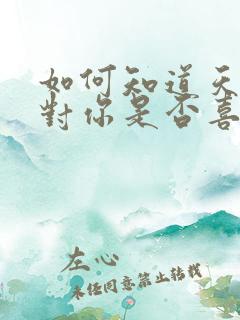 如何知道天
對你是否喜
左心
未经同意禁止转载